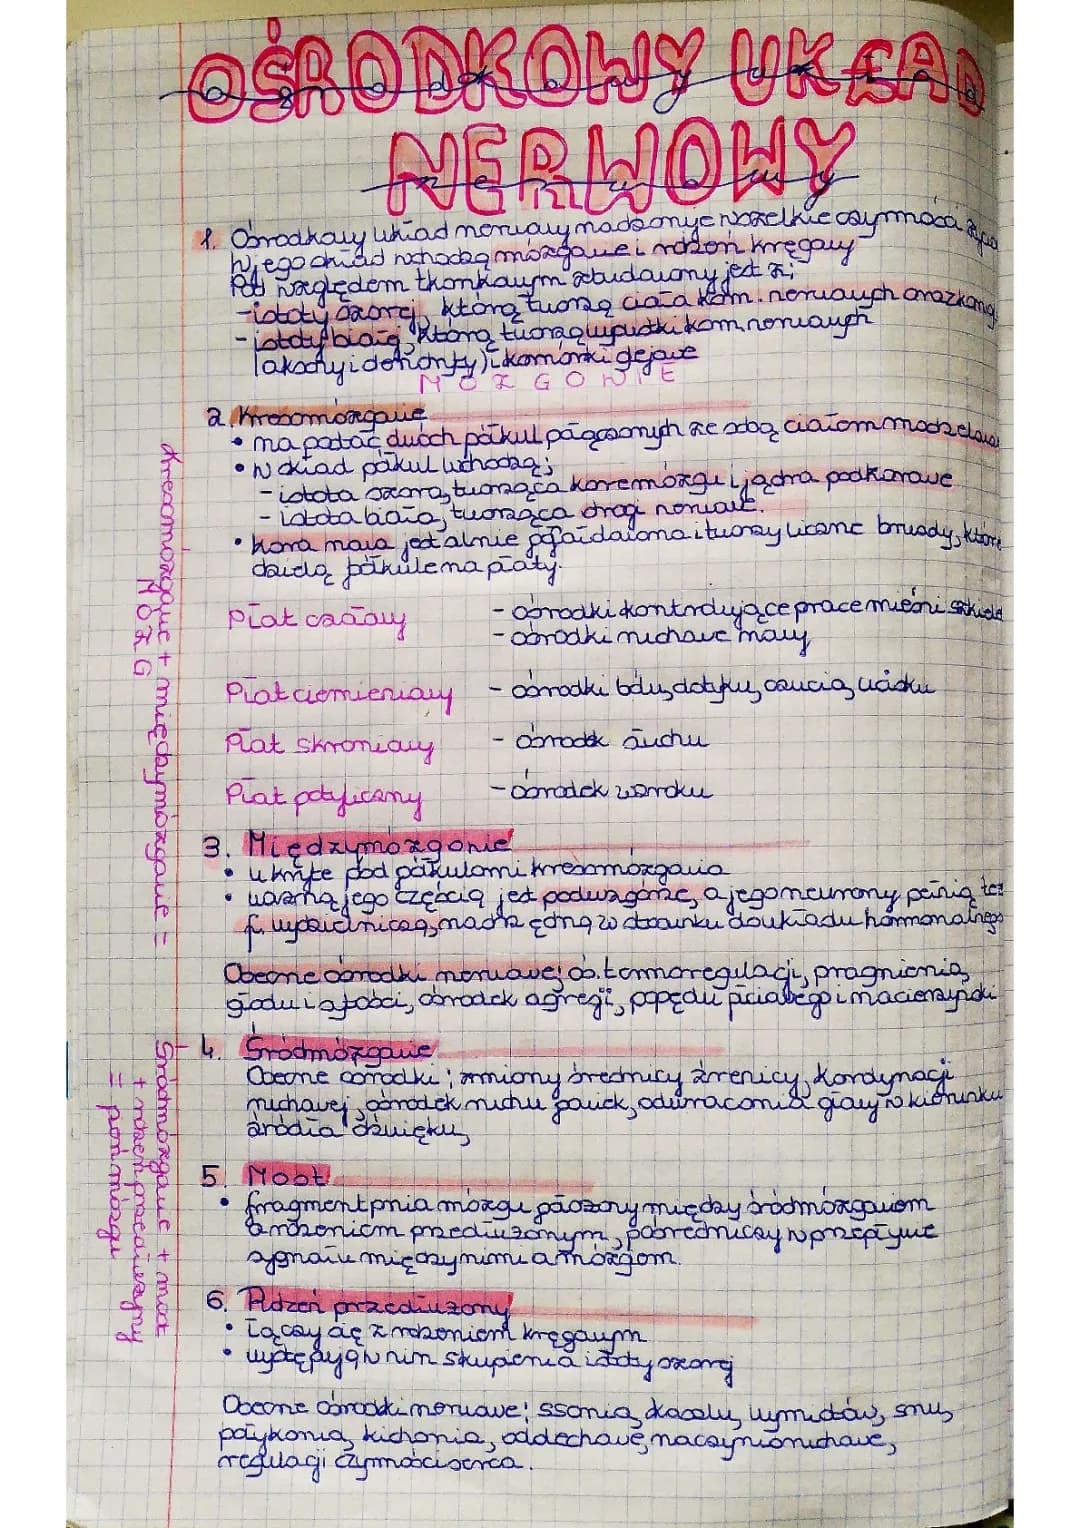 OŚRODKOWY UKŁAD
NERWOWY
1. Ośrodkowy układ nerwowy nadzoruje wszelkie czynności
W jego skład wchodzą mózgowie i rdzeń kręgowy
Pod względem tkankowym zbudowany jest z:
- istoty szarej, którą tworzą ciała kom. nerwowych oraz
- istoty białej, którą tworzą wypustki kom. nerwowych
(aksony i dendryty) i komórki glejowe
MÓZGOWIE
2. Kresomózgowie
• ma postać dwóch półkul połączonych ze sobą ciałem modzelowa
• w skład półkul wchodzą:
- istota szara, tworząca korę mózgu i jądra podkorowe
- istota biała, tworząca drogi nerwowe.
• kora jest silnie pofałdowana i tworzy liczne bruzdy, które
dzielą półkule na płaty.
Płat czołowy - ośrodki kontrolujące prace mięśni szkiele
- ośrodki ruchowe mowy
Płat ciemieniowy - ośrodki bólu, dotyku, czucia, ucisku
Płat skroniowy - ośrodek słuchu
Płat potyliczny - ośrodek wzroku
3. Międzymózgowie
• ukryte pod półkulami kresomózgowia
• ważną jego częścią jest podwzgórze, a jego neurony pełnią też
f. wydzielniczą, nadrzędną w stosunku do układu hormonalnego
Obecne ośrodki nerwowe: oś. termoregulacji, pragnienia,
głodu i sytości, ośrodek agresji, popędu płciowego i macierzyński
4. Śródmózgowie
Obecne ośrodki: zmiany średnicy źrenicy, kordynacji
ruchowej, ośrodek ruchu powiek, odwracania głowy w kierunku
źródła dźwięku,
5. Most
• fragment pnia mózgu położony między śródmózgowiem
a rdzeniem przedłużonym, pośredniczy w przepływie
sygnału między nimi a mózgiem.
6. Rdzeń przedłużony
• łączy się z rdzeniem kręgowym
• występują w nim skupienia istoty szarej
Obecne ośrodki nerwowe: ssania, kaszlu, wymiotów, snu,
połykania, kichania, oddechowe, naczynioruchowe,
regulacji czynności serca.
Kresomózgowie + międzymózgowie =
MÓZG
Śródmózgowie + most
+ rdzeń przedłużony
= pień mózgu